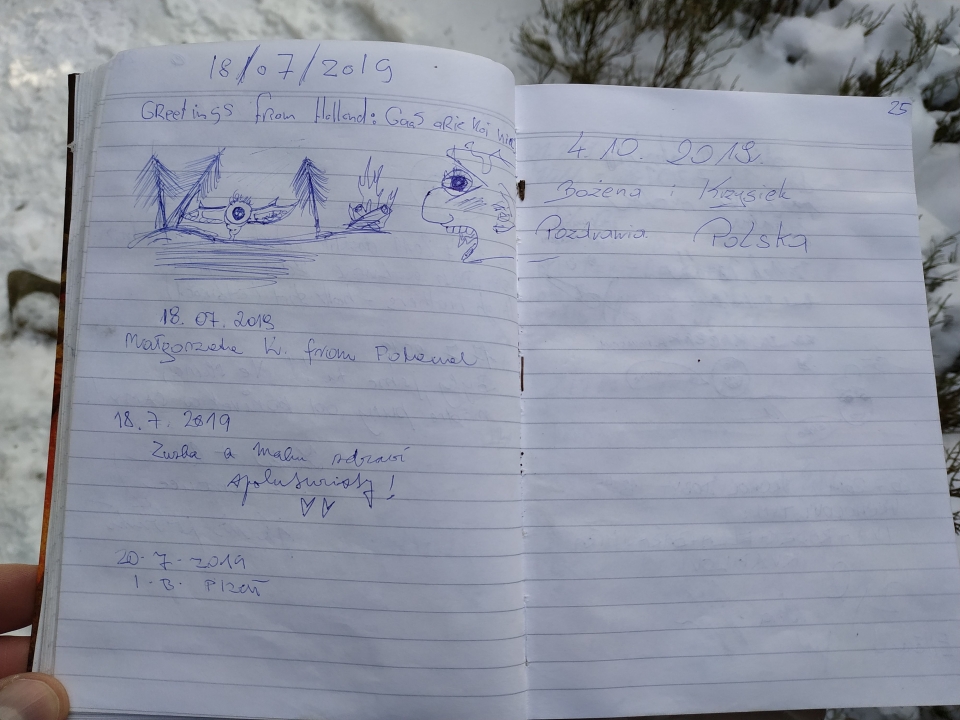 18/07/2019
Greetings from Holland:
18.07.2019
Małgorzata K. from
18.7.2019
Zuzka a zdraví
spoluturisty!
20.7.2019
I.B. Plzeň
25
4.10.2019.
Bożena i Krzysiek
Pozdrawia Polska